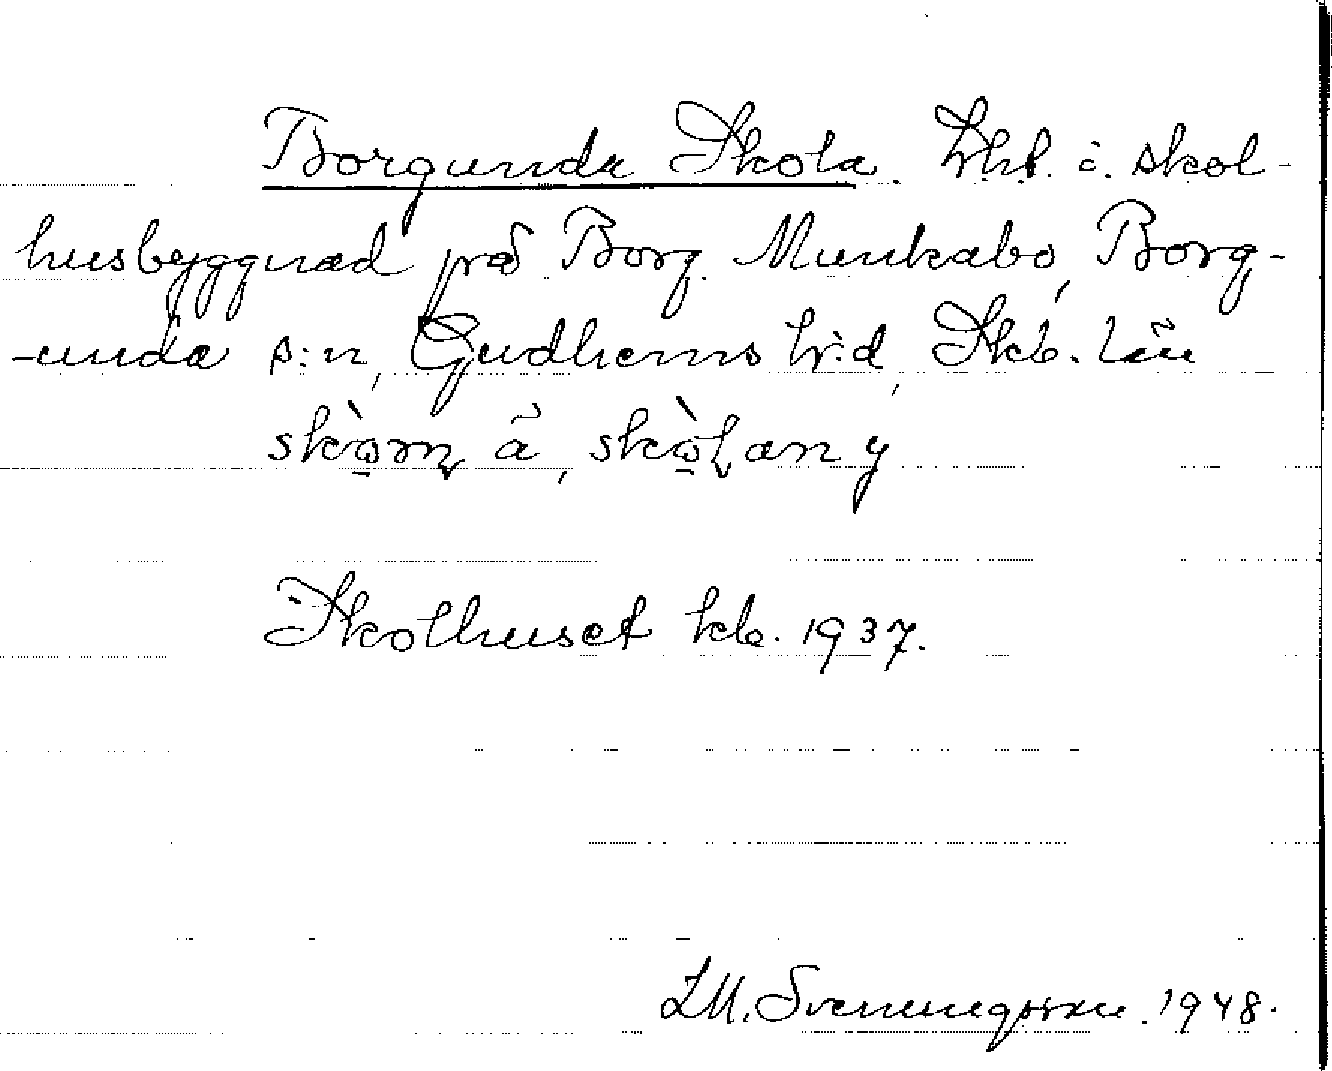 Borgunda Skola. Lht. i. skol-
husbyggnad på Borg. Munkabo, Borg-
-unda s:n, Gudhems h:d, Skb. län
skò̠ɽn̥ ã, skò̠ɽan y
Skolhuset kb. 1937.
L.M. Svennungsson. 1948.